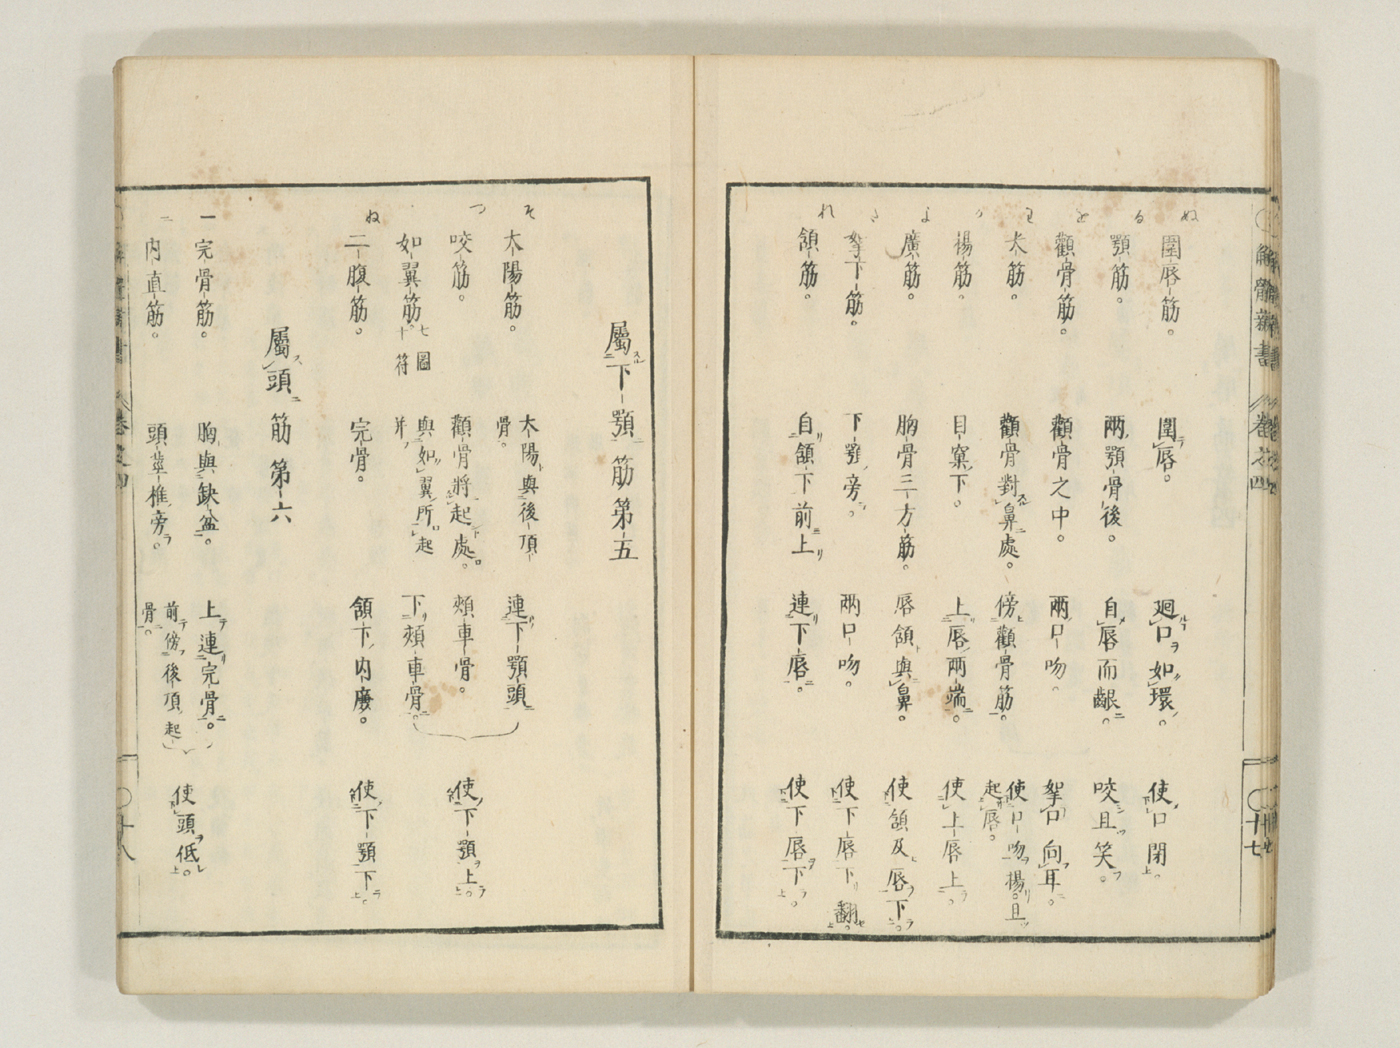 ぬ 圍唇筋。 圍唇。 廻口如環。 使口閉。
る 顎筋。 兩顎骨後。 自唇而齦。 咬且笑。
を 顴骨筋。 顴骨之中。 兩口吻。 拏口向耳。
わ 犬筋。 顴骨對鼻處。 傍顴骨筋。 使口吻揚。且起唇。
か 揚筋。 目窠下。 上唇兩端。 使上唇上。
よ 廣筋。 胸骨三方筋。 唇頷與鼻。 使頷及唇下。
た 拏下筋。 下顎旁。 兩口吻。 使下唇下翻。
れ 頷筋。 自頷下前上 連下唇。 使下唇下。
解體新書 卷之四 十七
屬下顎筋第五
そ 太陽筋。 太陽與後頂骨。 連下顎頭
つ 咬筋。 顴骨將起處。 頰車骨。 使下顎上。
如翼筋。七圖十符 與如翼所起并 下頰車骨。
ね 二腹筋。 完骨。 頷下內廉。 使下顎下。
屬頭筋第六
一 完骨筋。 胸與缺盆。 上連完骨。
二 內直筋。 頭莖椎旁。 前傍後頂起骨。 使頭低。
十八